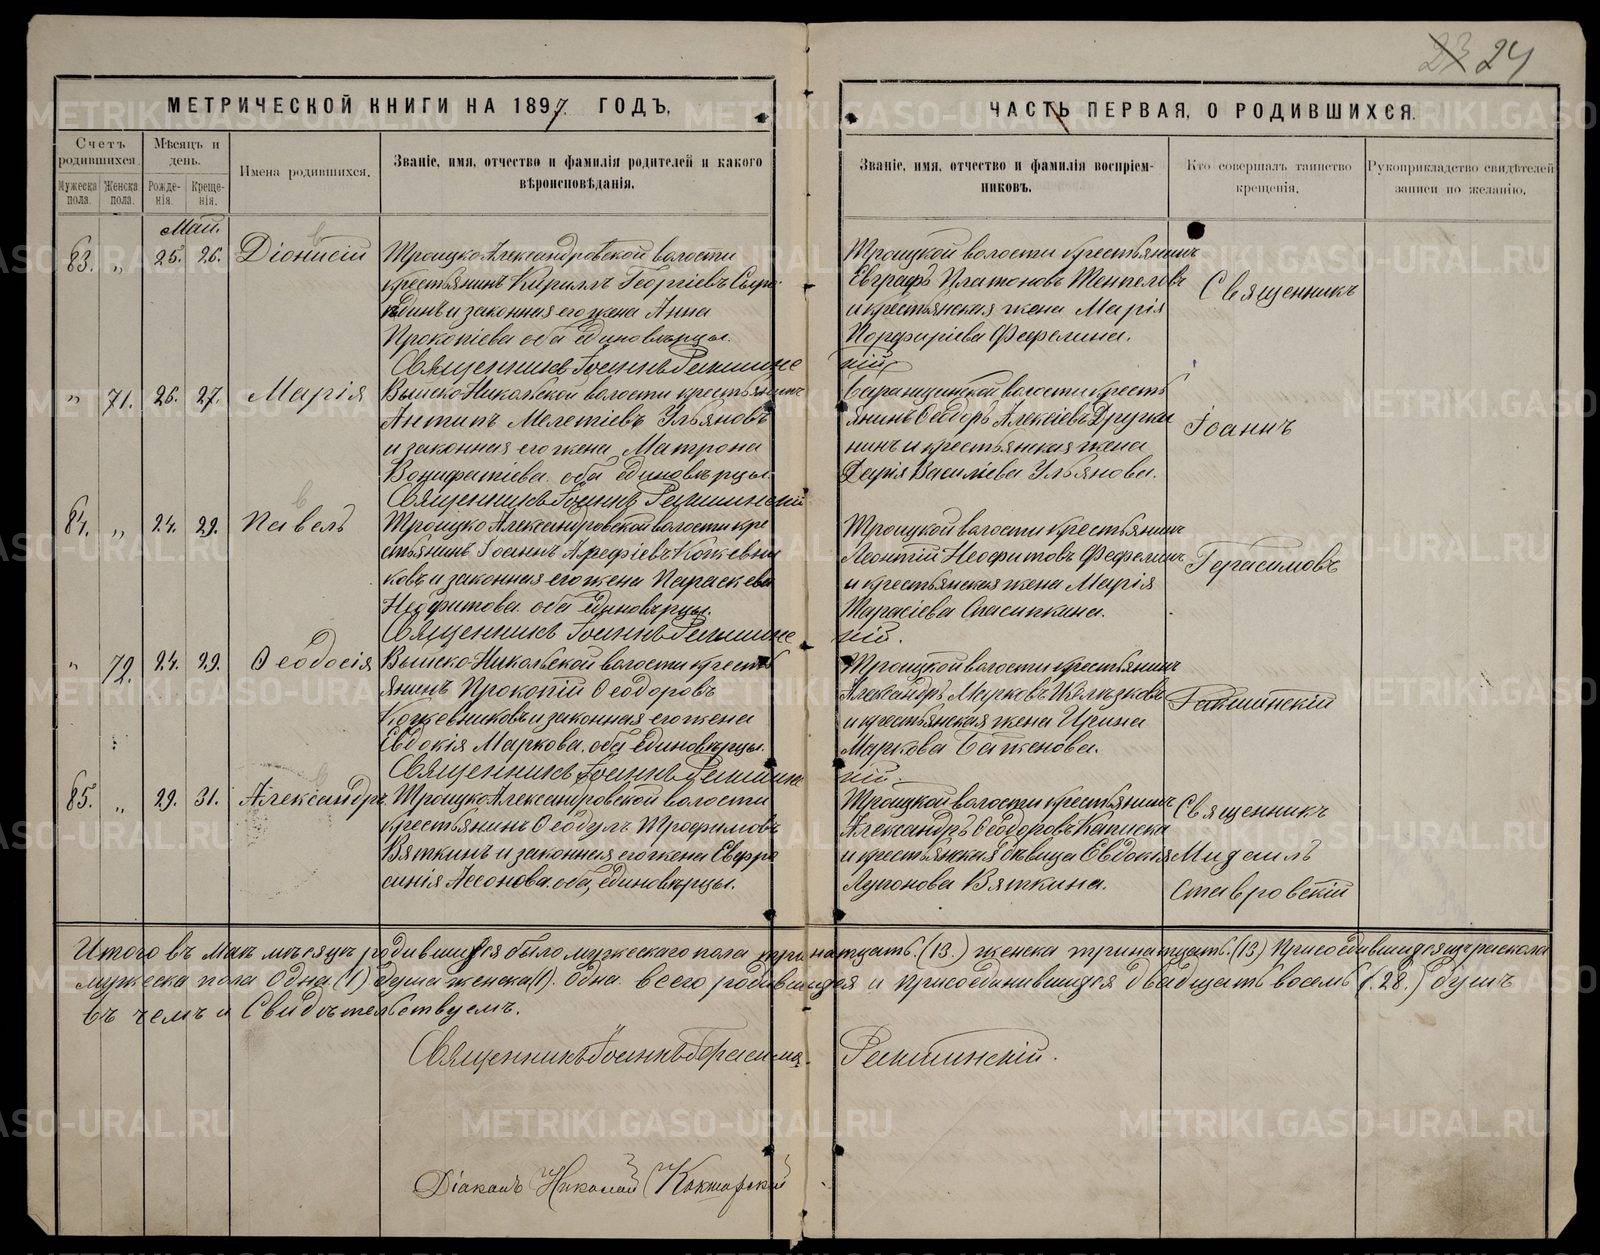 23 24
МЕТРИЧЕСКОЙ КНИГИ НА 1897. ГОДЪ,
ЧАСТЬ ПЕРВАЯ, О РОДИВШИХСЯ.
Счетъ родившихся.
Мужеска пола.
Женска пола.
Мѣсяцъ и день.
Рожде-нія.
Креще-нія.
Имена родившихся.
Званіе, имя, отчество и фамилія родителей и какого вѣроисповѣданія.
Званіе, имя, отчество и фамилія воспріем-никовъ.
Кто совершалъ таинство крещенія.
Рукоприкладство свидѣтелей записи по желанію.
Май.
83. „ 25. 26. Діонисій
Троицко Александровской волости
крестьянинъ Кириллъ Георгіевъ
и законная его жена Анна
Прокопіева оба единовѣрцы.
Священникъ Іоаннъ
Троицкой волости крестьянинъ
Евграфъ Платоновъ
и крестьянская жена Марія
Порфиріева Фефелина.
Священникъ
„ 71. 26. 27. Марія
Выйско-Никольской волости крестьянинъ
Антипъ Мелетіевъ Ульяновъ
и законная его жена Матрона
Вонифатіева оба единовѣрцы.
Священникъ Іоаннъ
Баранчинской волости кресть
янинъ Ѳеодоръ Алексіевъ Дружи
нинъ и крестьянская жена
Дарія Василіева Ульянова.
Іоаннъ
84. „ 24. 29. Павелъ
Троицко Александровской волости кре
стьянинъ Іоаннъ Арефіевъ Кожевни
ковъ и законная его жена Параскева
оба единовѣрцы.
Священникъ Іоаннъ
Троицкой волости крестьянинъ
Леонтій Неофитовъ Фефелинъ
и крестьянская жена Марія
Тарасіева
Герасимовъ
„ 72. 24. 29. Ѳеодосія
Выйско-Никольской волости кресть
янинъ Прокопій Ѳеодоровъ
Кожевниковъ и законная его жена
Евдокія Маркова, оба единовѣрцы.
Священникъ Іоаннъ
Троицкой волости крестьянинъ
Александръ Марковъ
и крестьянская жена Ирина
Маркова Баженова.
85. „ 29. 31. Александръ
Троицко Александровской волости
крестьянинъ Ѳеодулъ Трофимовъ
Вяткинъ и законная его жена Евфро
синія оба единовѣрцы.
Троицкой волости крестьянинъ
Александръ Ѳеодоровъ
и крестьянская дѣвица Евдокія
Вяткина.
Священникъ
Михаилъ
Ставровскій
Итого въ Маѣ мѣсяцѣ родившихся было мужескаго пола тринатцать (13.) женска тринатцать. (13) Присоединившихся изъ раскола
мужеска пола одна (1) душа женска (1). одна. всего родившихся и присоединившихся двадцать восемь (28.) душъ
въ чемъ и Свидѣтельствуемъ.
Священникъ Іоаннъ
Діаконъ Николай